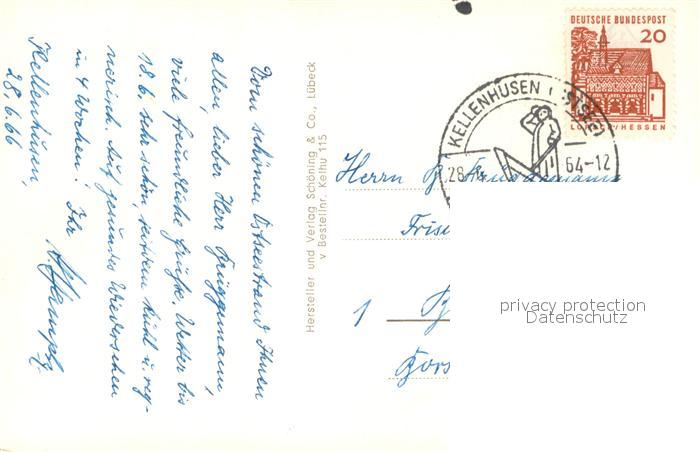 Vom schönen Ostseestrand Ihnen
allen, lieber Herr Brüggemann,
viele freundliche Grüße. Wetter bis
18.6. sehr schön, seitdem kühl u. reg-
nerisch. Auf gesundes Wiedersehen
in 4 Wochen! Ihr
Kellenhusen,
28.6.66
Hersteller und Verlag Schöning & Co., Lübeck
v Bestellnr. Kelhu 115
DEUTSCHE BUNDESPOST
20
LORSCH/HESSEN
KELLENHUSEN
28.6. 64-12
Herrn
Fris
1
privacy protection
Datenschutz